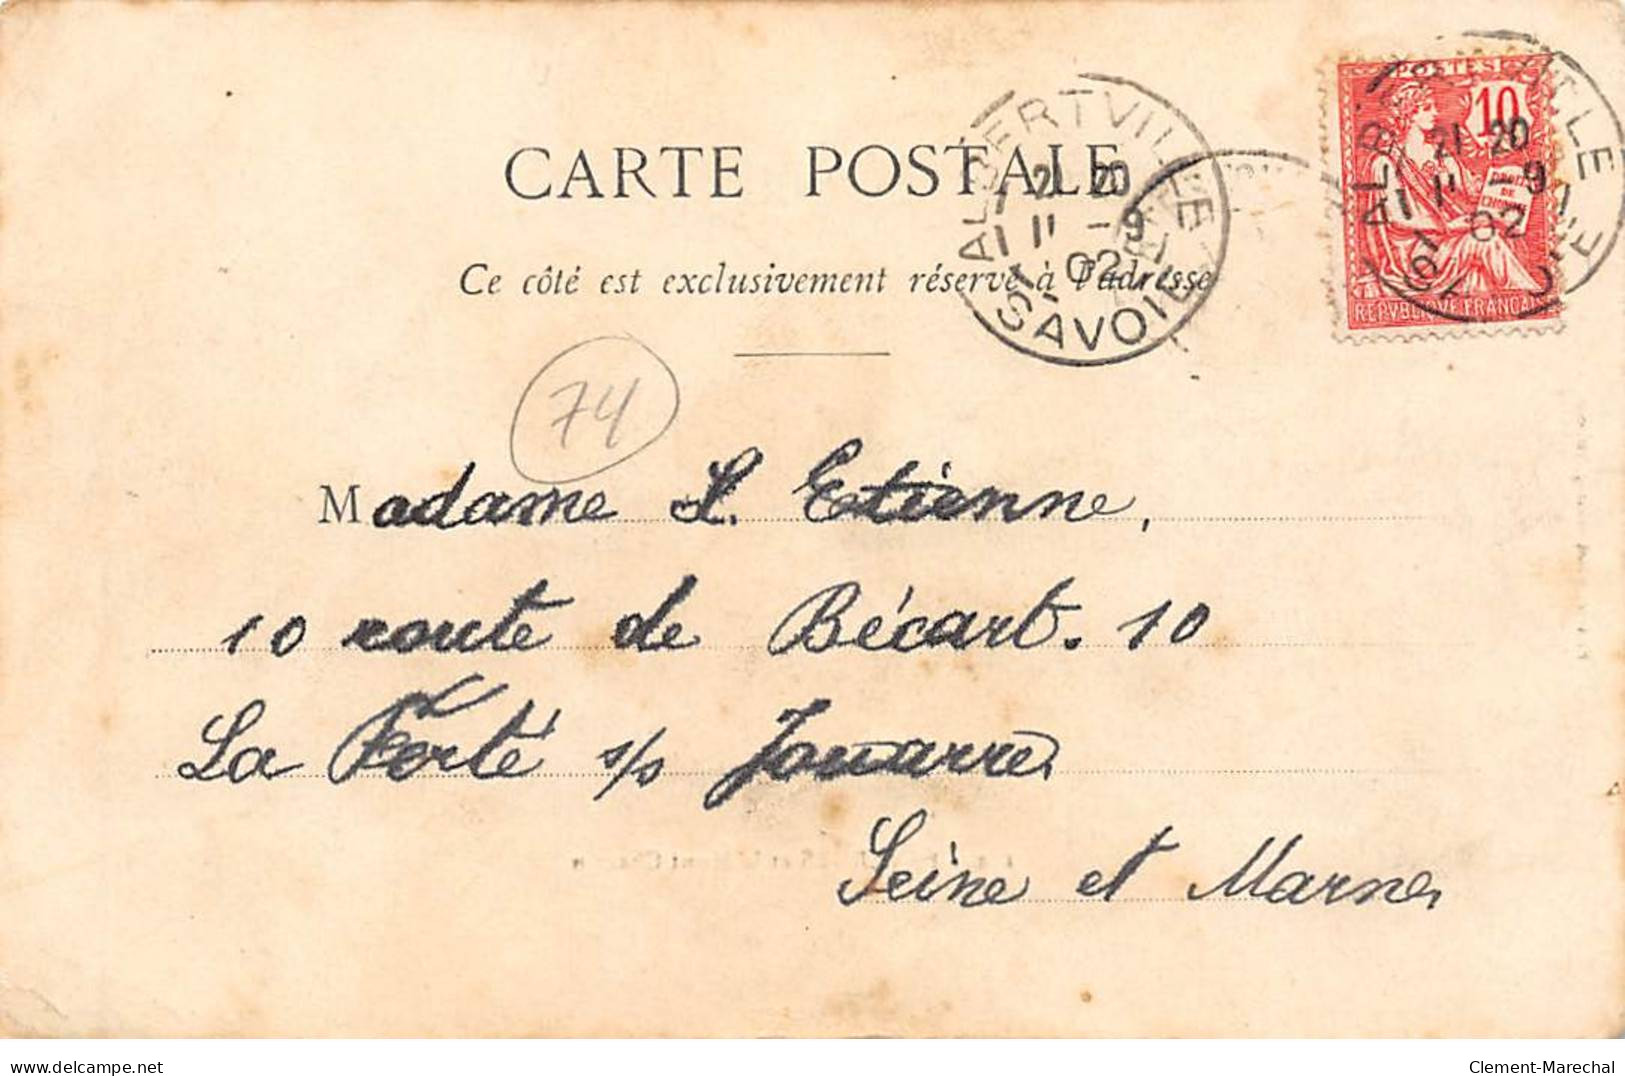 CARTE POSTALE
Ce côté est exclusivement réservé à l'adresse
ALBERTVILLE
21 20
11 - 9
02
SAVOIE
POSTES
10
21 20
11 - 9
02
DROITS
DE
L'HOMME
REPVBLIQVE FRANCAISE
74
Madame L. Etienne,
10 route de Bécart. 10
La Ferté s/s Jouarre
Seine et Marne
Clement-Marechal